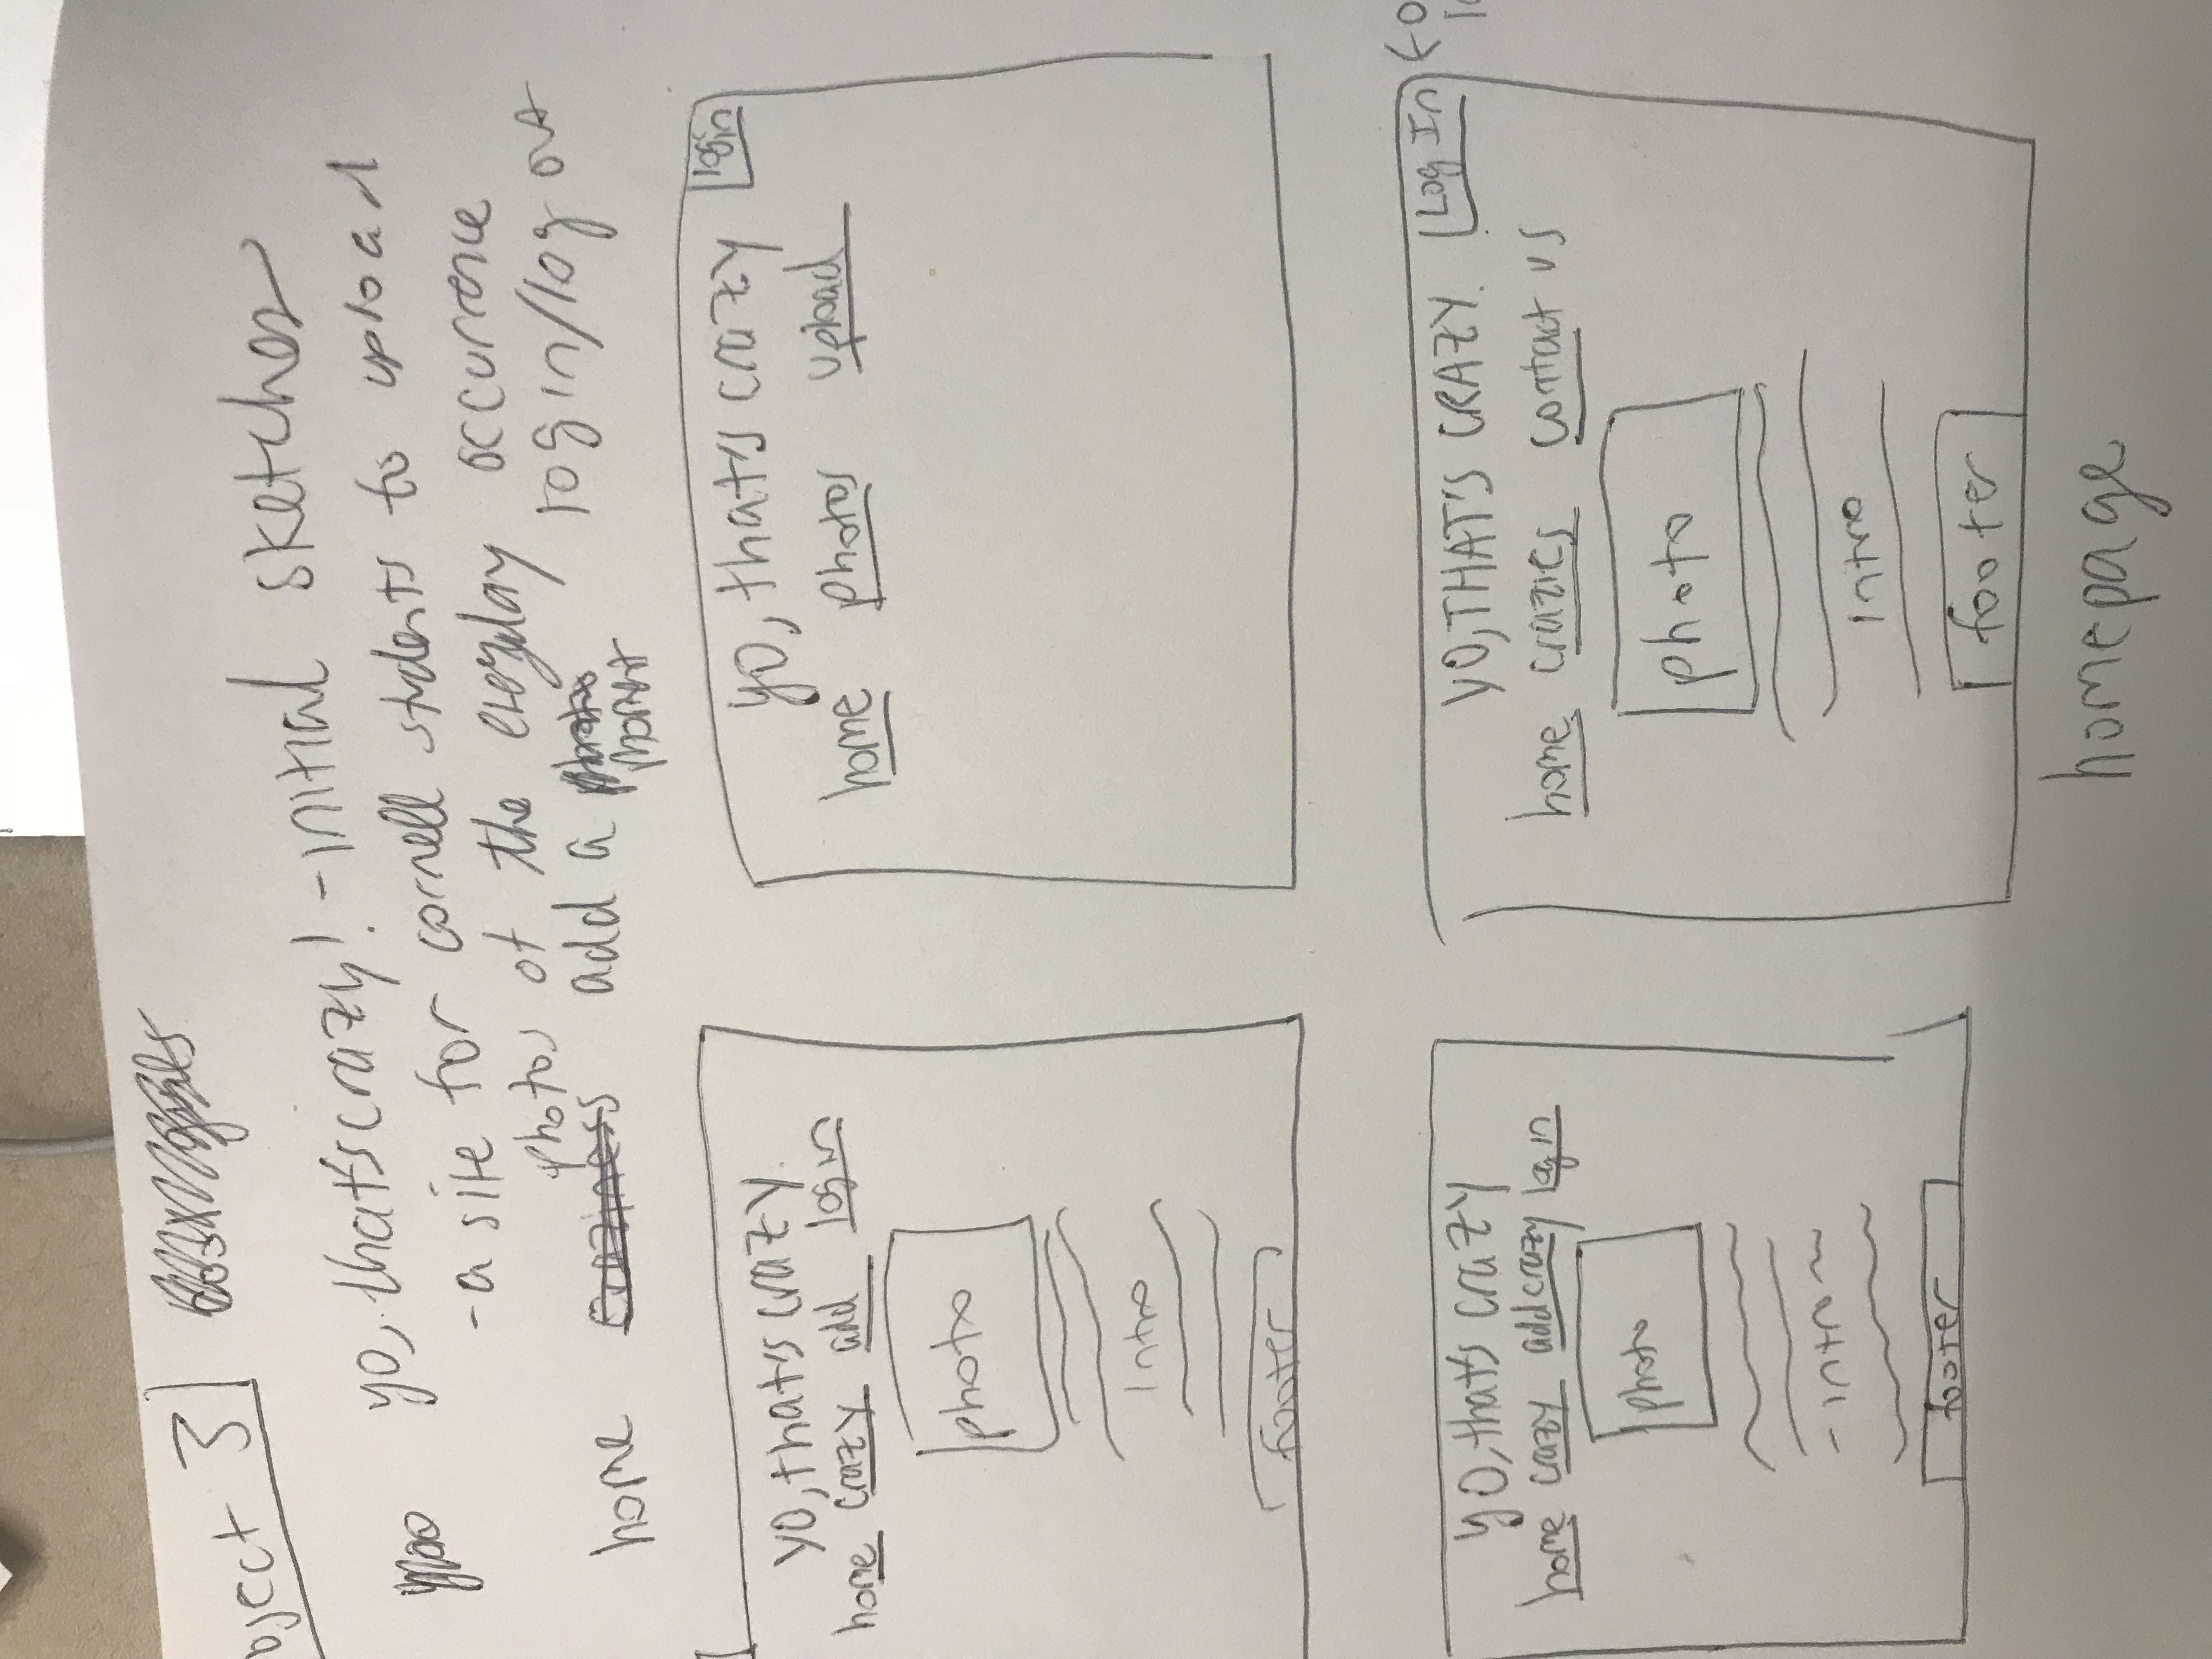 oject 3
yo, that's crazy! - initial sketches
- a site for cornell students to upload
photos of the everyday occurrence
home craziness add a photo log in/log out
moment
yo, that's crazy.
home crazy add log in
photo
intro
footer
yo, that's crazy login
home photos upload
yo, that's crazy
home crazy add crazy log in
photo
- intro
footer
YO, THAT'S CRAZY. Log In
home crazies contact us
photo
intro
footer
homepage